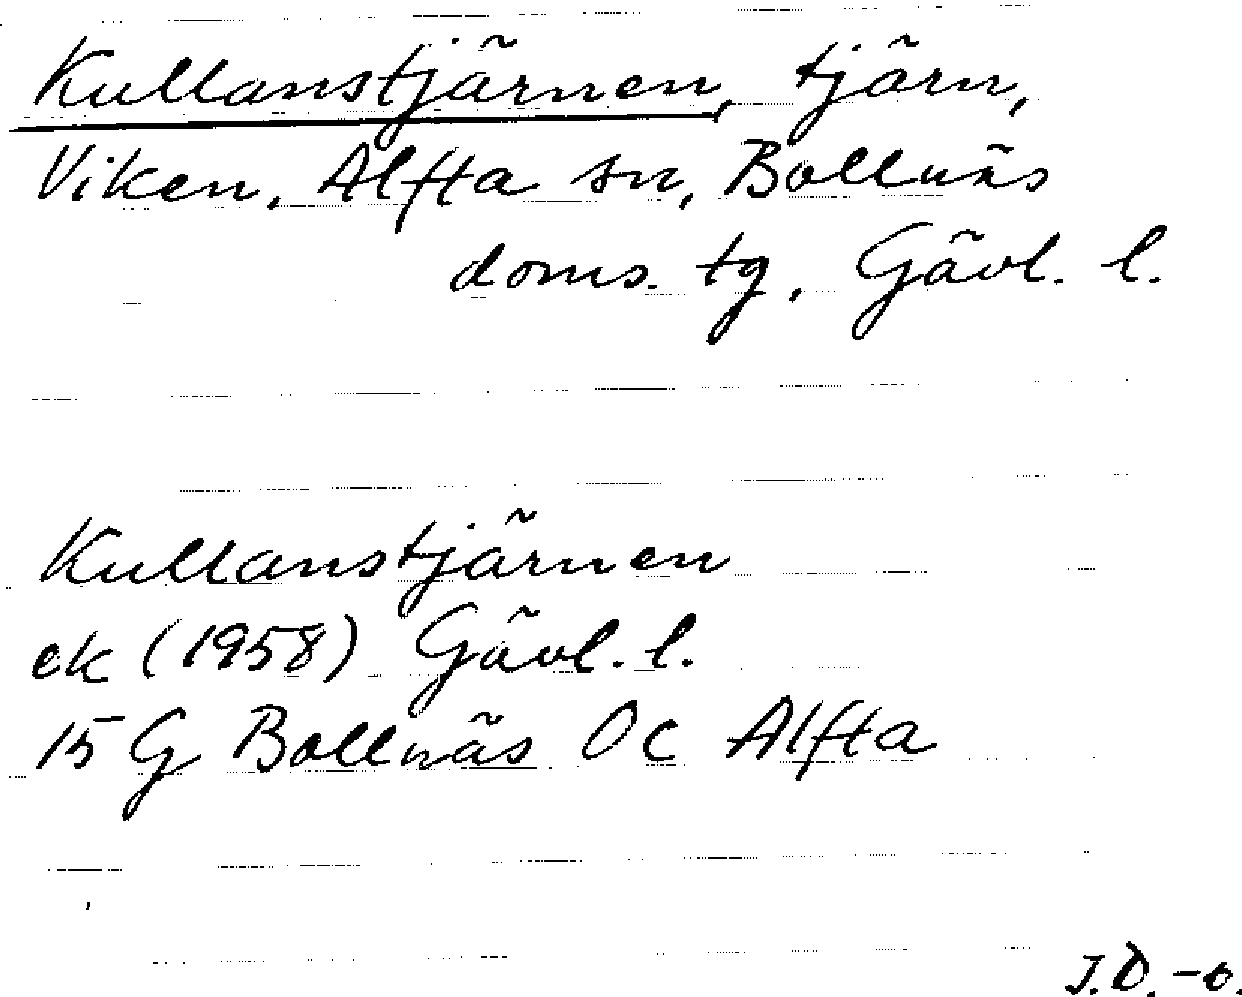 Kullanstjärnen, tjärn,
Viken, Alfta sn, Bollnäs
doms. tg, Gävl. l.
Kullanstjärnen
ek (1958) Gävl. l.
15 G Bollnäs 0c Alfta
I.D.-o.